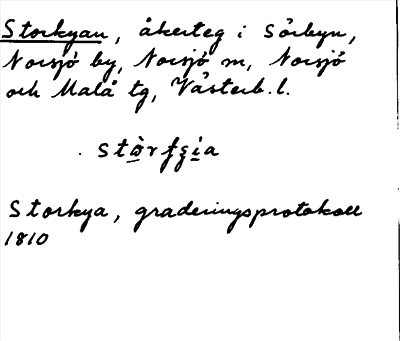 Storkyan, åkerteg i Sörbyn,
Norsjö by, Norsjö m, Norsjö
och Malå tg, Västerb. l.
Storkya, graderingsprotokoll
1810